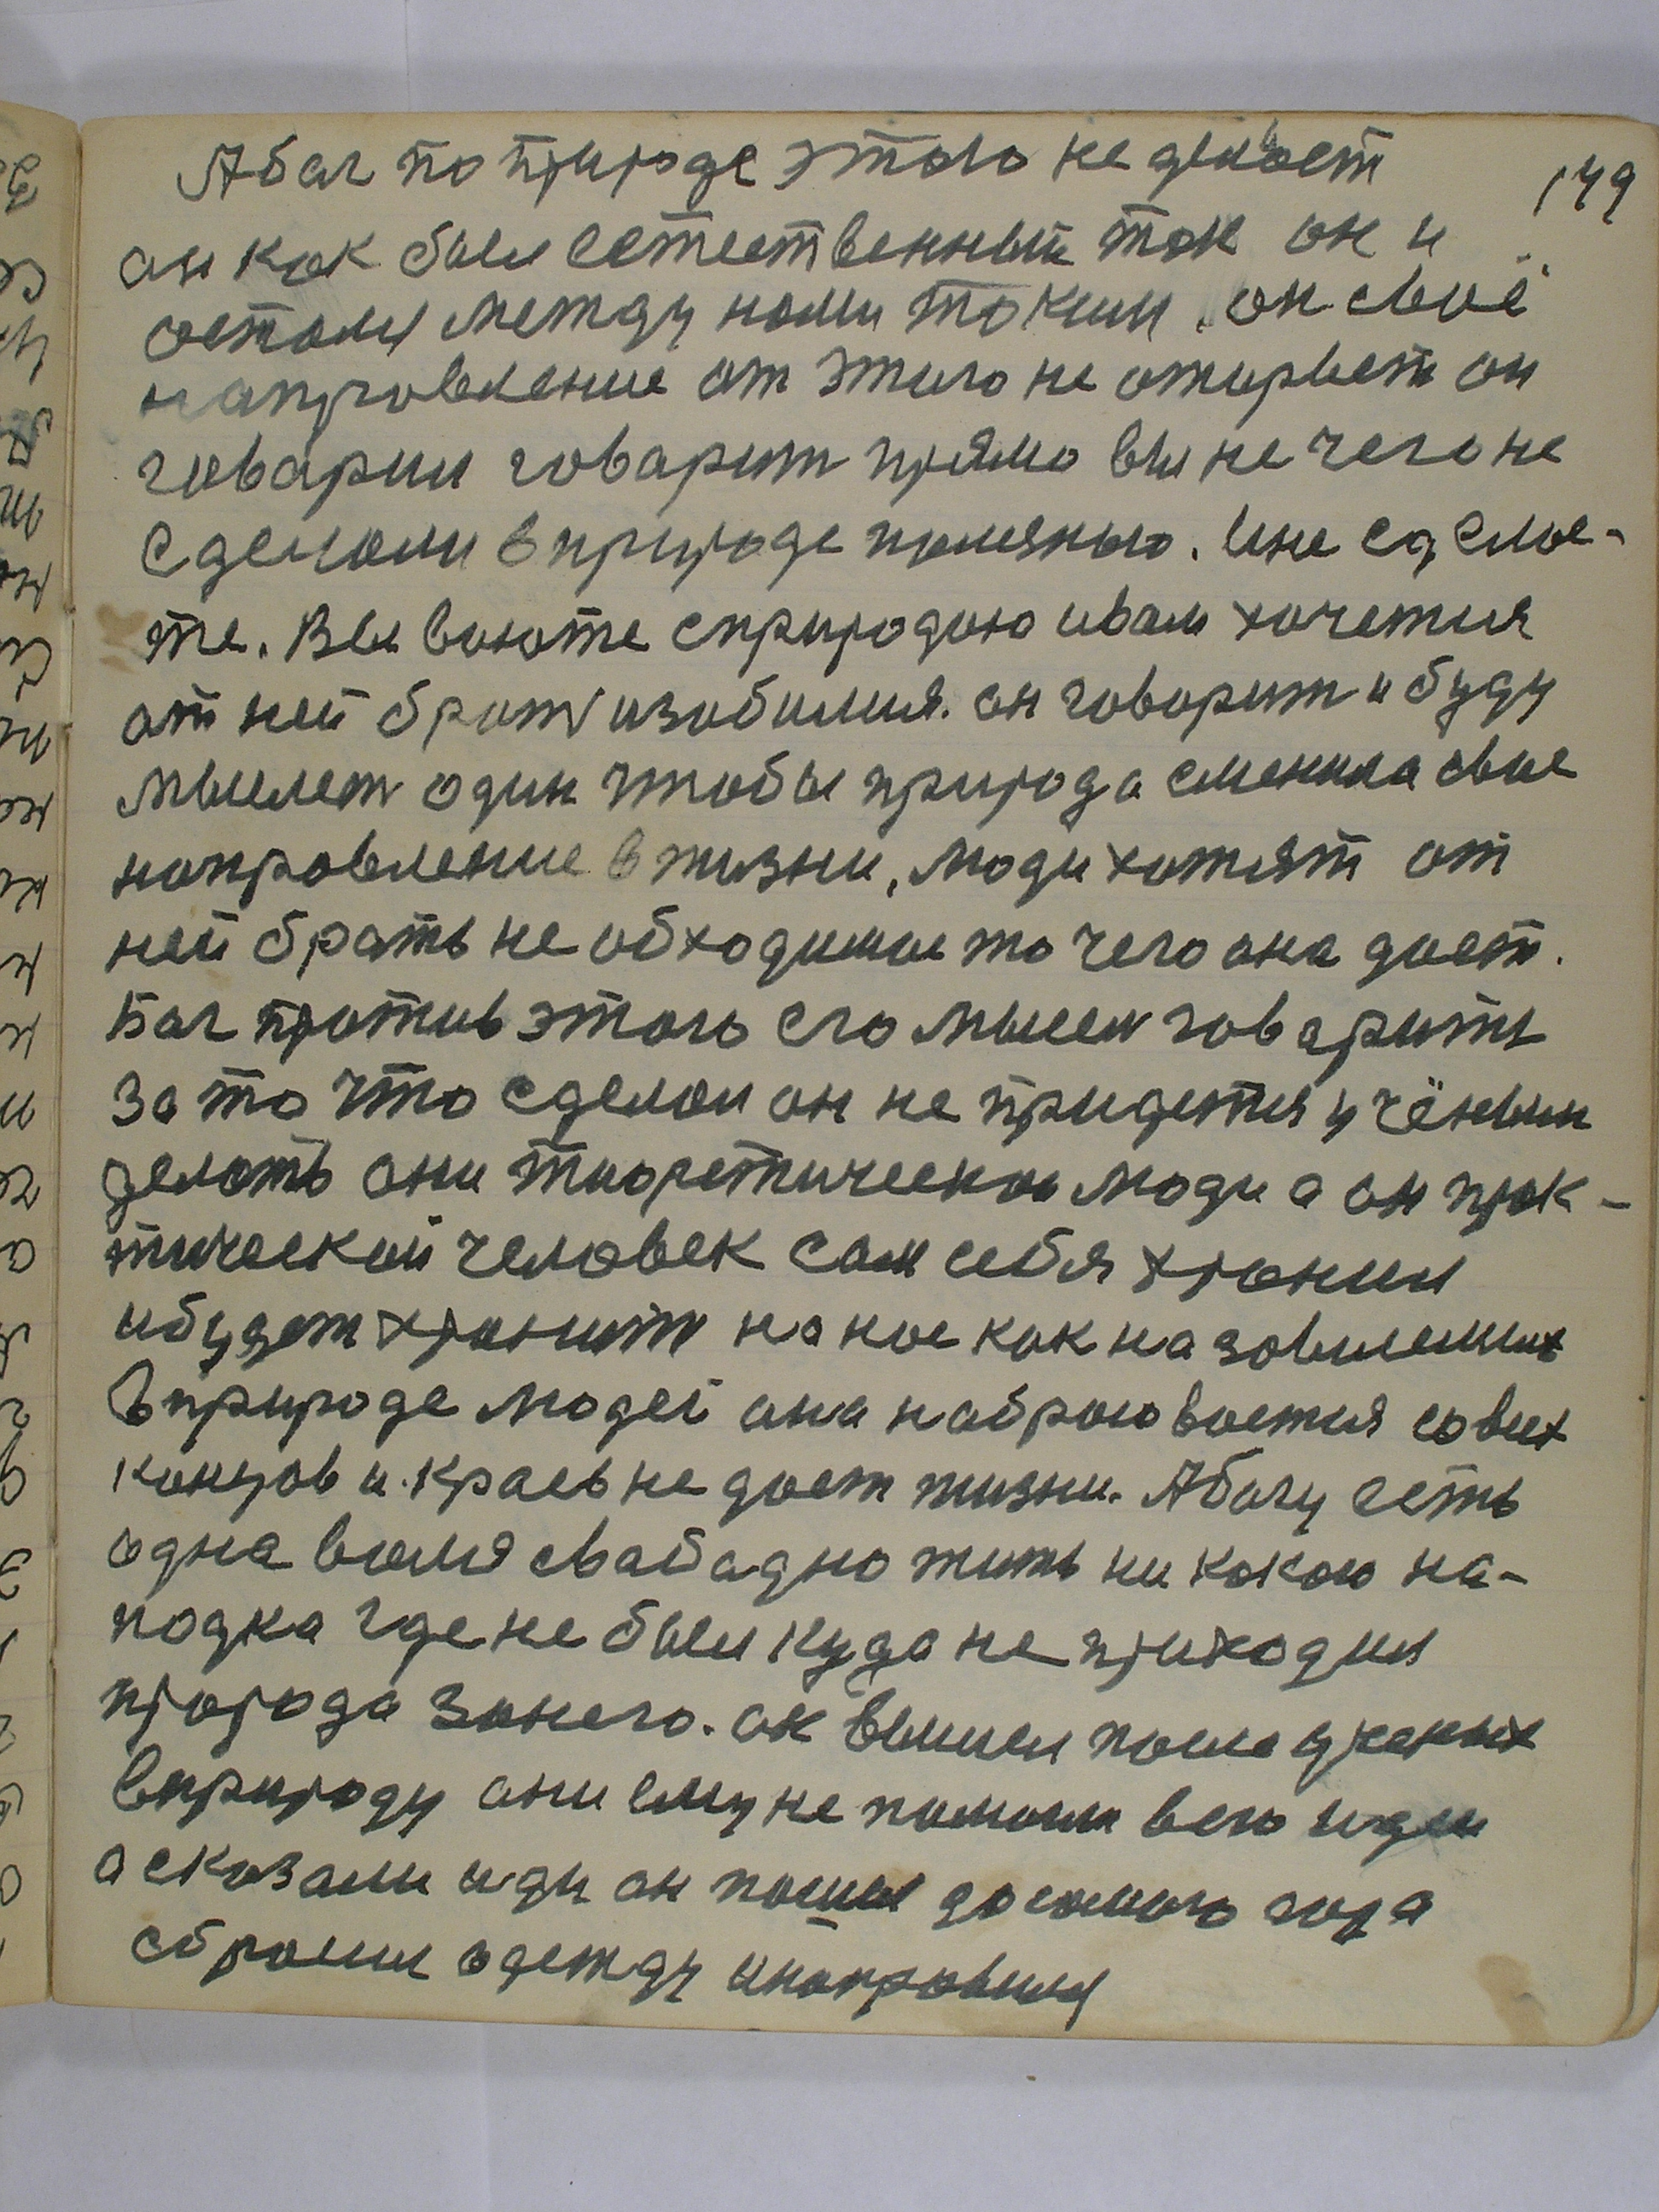 Абаг по природе этого не делает 149
он как был естественный так он и
астался между нами таким. он своё
направление от этого не отарвет он
говарил говарит прямо вы не чего не
сделали в природе прменью. Ине сделае-
те. Вы воюте сприродою ивам хочетия
от ней брать изобилия. он говорит и буду
мыслет один чтобы природа сменила свое
направление в жизни, люди хотят от
ней брать не обходимое то чего она дает.
Баг против этого его мысел говарить
за то что сделал он не придется учёным
делать они тиоретическои люди а он прак-
тическай человек сам себя хранил
ибудет хранит на нас как на завилеших
вприроде людей она набрасоваетия совсех
концов и краев не дает жизни. Абагу есть
одна воля свабадно жить ни какою на-
падка где не был куда не приходил
природа занего. он вышел после ученых
вприроду они ему не помогли вего идеи
а сказали иди он пошел до самого года
сбросил одежду инаправился